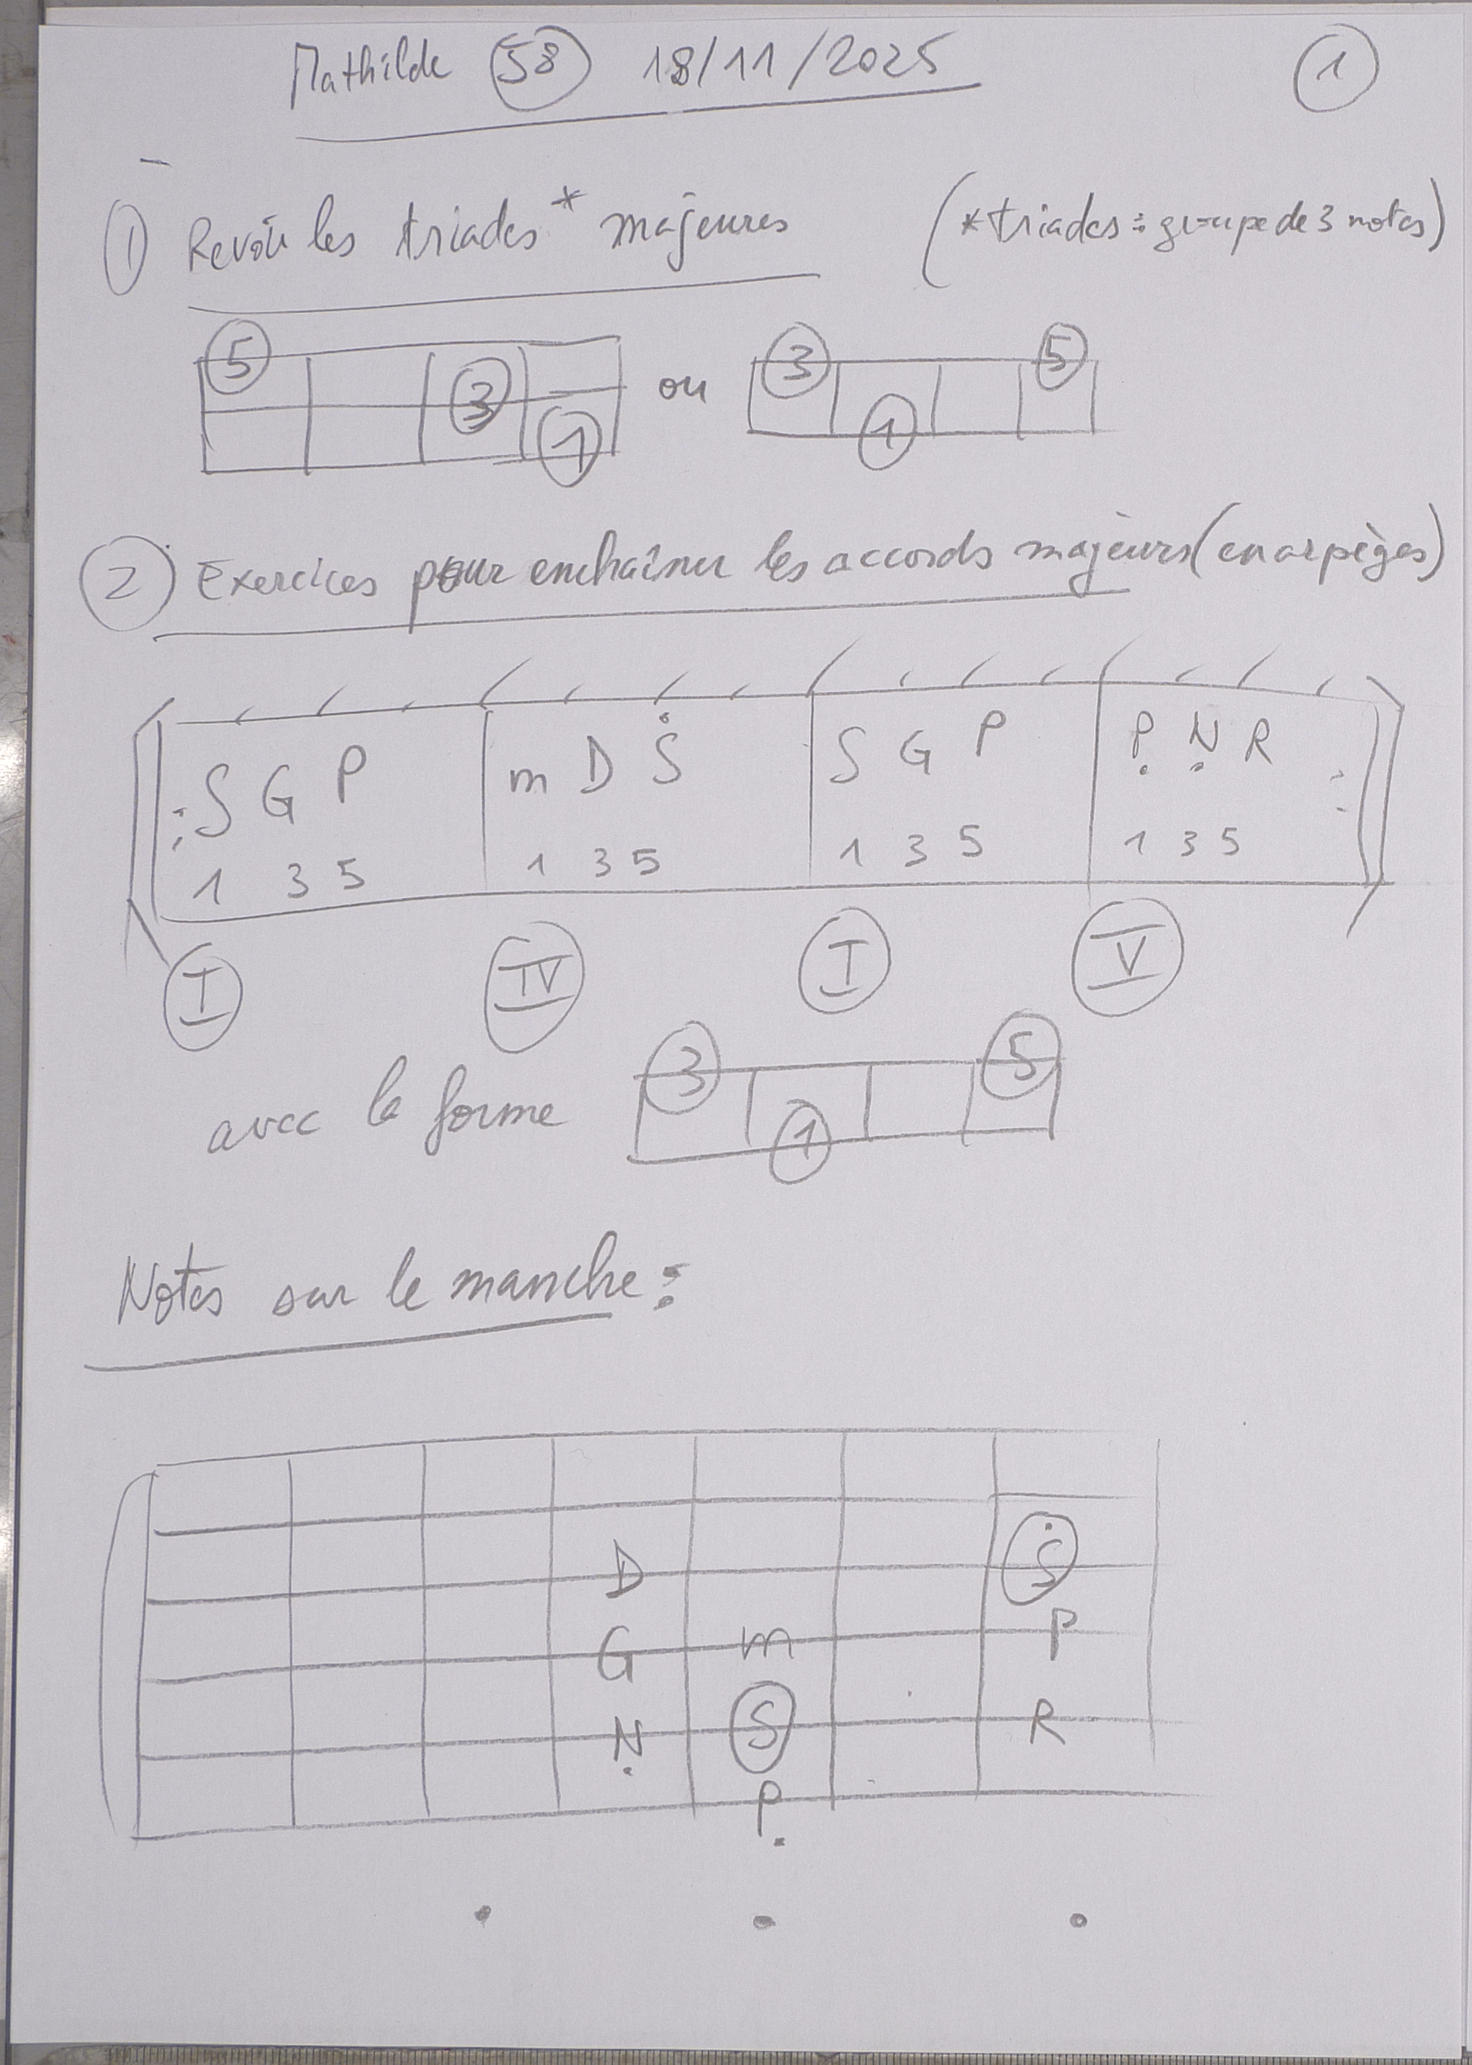 Mathilde 58 18/11/2025 1
1 Revoir les triades* majeures (*triades: groupe de 3 notes)
5 3 1 ou 3 1 5
2 Exercices pour enchaîner les accords majeurs (en arpèges)
: S G P m D Ṡ S G P P̣ Ṇ R :
1 3 5 1 3 5 1 3 5 1 3 5
I IV I V
avec la forme 3 1 5
Notes sur le manche:
D Ṡ
G m P
Ṇ S R
P̣